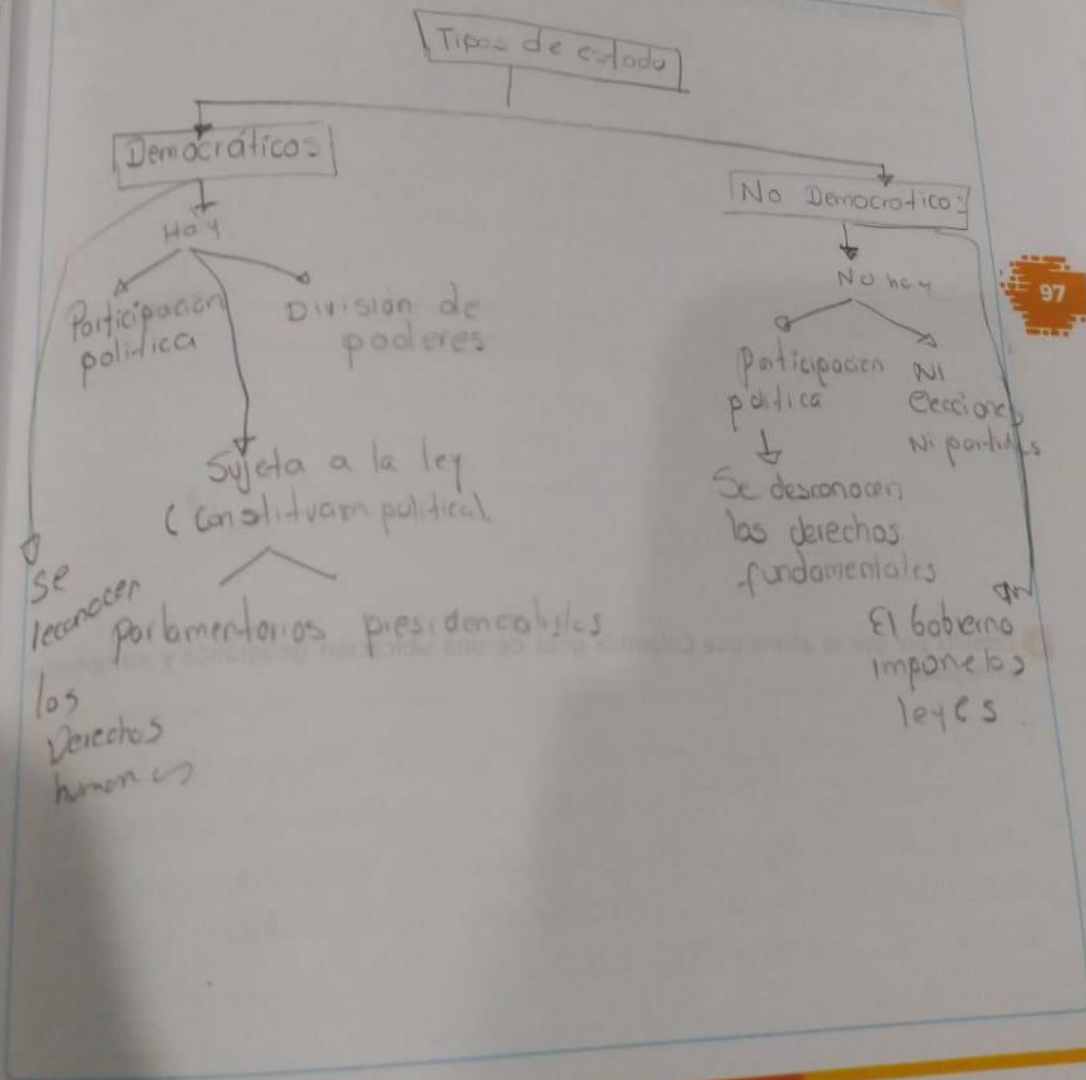 Tipos de estado
Democráticos
Hay
Participacion
politica
División de
poderes
Sujeta a la ley
(Constitucion politica)
parlamentarios presidencialistas
Se
reconocen
los
Derechos
humanos
No Democratico
No hay
Participacion
politica
Ni
elecciones
Ni partidos
Se desconocen
los derechos
fundamentales
El Gobierno
impone las
leyes
97